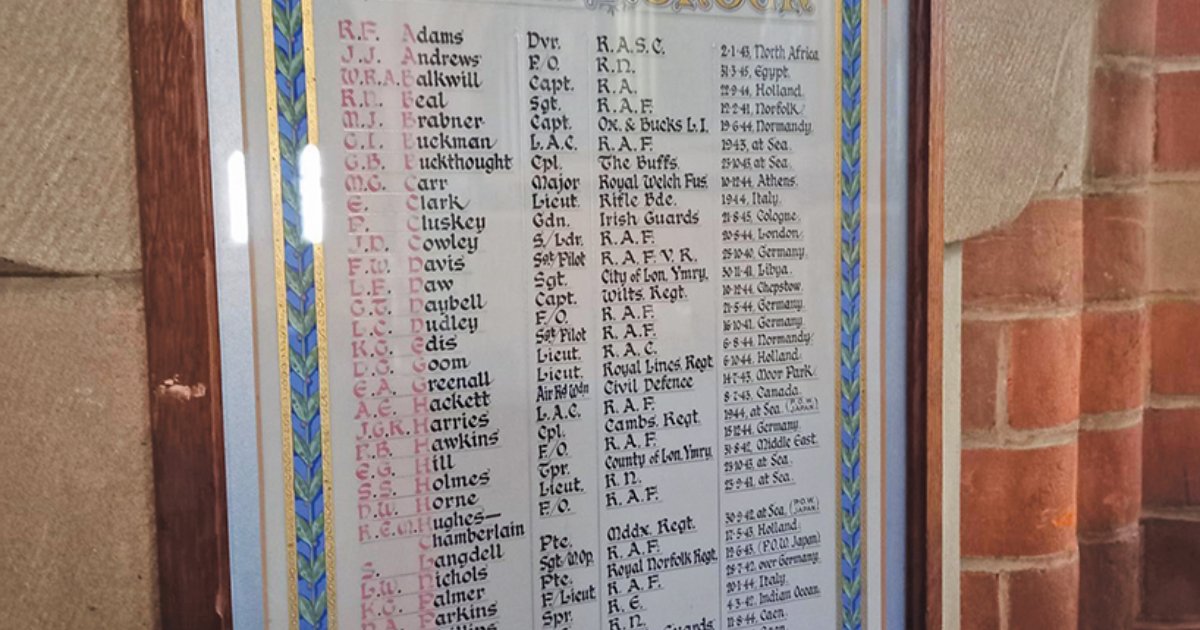 R.F. Adams Dvr. R.A.S.C. 2·1·43, North Africa
J.J. Andrews F/O. R.N. 31·3·45, Egypt.
W.R.A. Balkwill Capt. R.A. 22·9·44, Holland.
R.N. Beal Sgt. R.A.F. 12·2·41, Norfolk.
M.J. Brabner Capt. Ox. & Bucks L.I. 19·6·44, Normandy.
G.I. Buckman L.A.C. R.A.F. 1943, at Sea.
G.B. Buckthought Cpl. The Buffs. 23·10·43, at Sea.
M.G. Carr Major Royal Welch Fus. 10·12·44, Athens.
E. Clark Lieut. Rifle Bde. 1944, Italy.
P. Cluskey Gdn. Irish Guards 21·8·45, Cologne.
J.D. Cowley S/Ldr. R.A.F. 20·5·44, London.
F.W. Davis Sgt Pilot R.A.F.V.R. 25·10·40, Germany.
L.F. Daw Sgt. City of Lon. Ymry. 30·11·41, Libya.
G.T. Daybell Capt. Wilts. Regt. 10·12·44, Chepstow.
L.C. Dudley F/O. R.A.F. 21·5·44, Germany.
K.G. Edis Sgt Pilot R.A.F. 16·10·41, Germany.
D.G. Goom Lieut. R.A.C. 6·8·44, Normandy.
E.A. Greenall Lieut. Royal Lincs. Regt. 6·10·44, Holland.
A.E. Hackett Air Rd Wdn Civil Defence 14·7·43, Moor Park.
J.G.K. Harries L.A.C. R.A.F. 8·7·43, Canada.
P.B. Hawkins Cpl. Cambs. Regt. 1944, at Sea. (P.O.W. JAPAN)
E.G. Hill F/O. R.A.F. 15·12·44, Germany.
S.S. Holmes Tpr. County of Lon. Ymry. 31·8·42, Middle East.
D.W. Horne Lieut. R.N. 23·10·43, at Sea.
R.E.M. Hughes– F/O. R.A.F. 23·9·41, at Sea.
Chamberlain
S. Langdell Pte. Mddx. Regt. 30·9·42, at Sea. (P.O.W. JAPAN)
L.W. Nichols Sgt/W.Op. R.A.F. 17·5·43, Holland.
K.G. Palmer Pte. Royal Norfolk Regt. 12·6·43, (P.O.W. Japan)
Parkins F/Lieut R.A.F. 28·7·42, over Germany.
Spr. R.E. 20·1·44, Italy.
R.N. 4·3·42, Indian Ocean.
Guards 11·8·44, Caen.